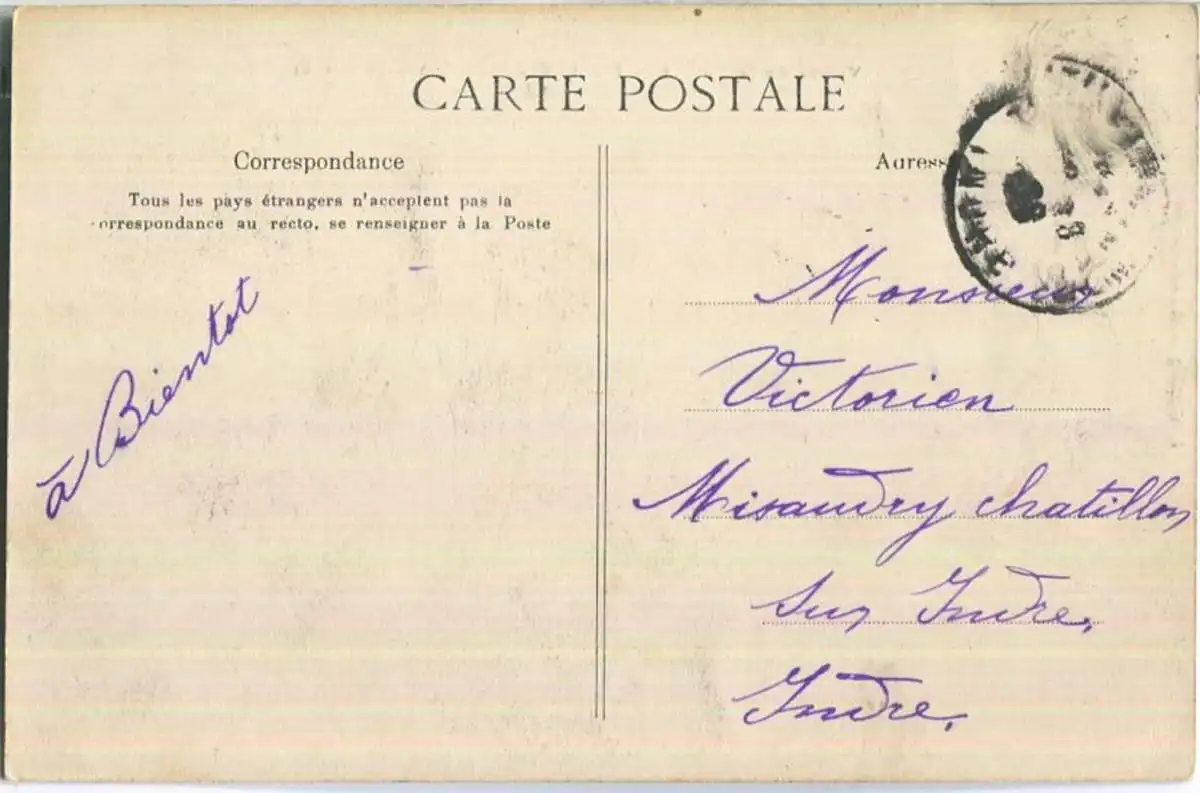 CARTE POSTALE
Correspondance
Tous les pays étrangers n'acceptent pas la
orrespondance au recto, se renseigner à la Poste
à Bientot
Adresse
Monsieur
Victorien
Misandry chatillon
sur Indre,
Indre,